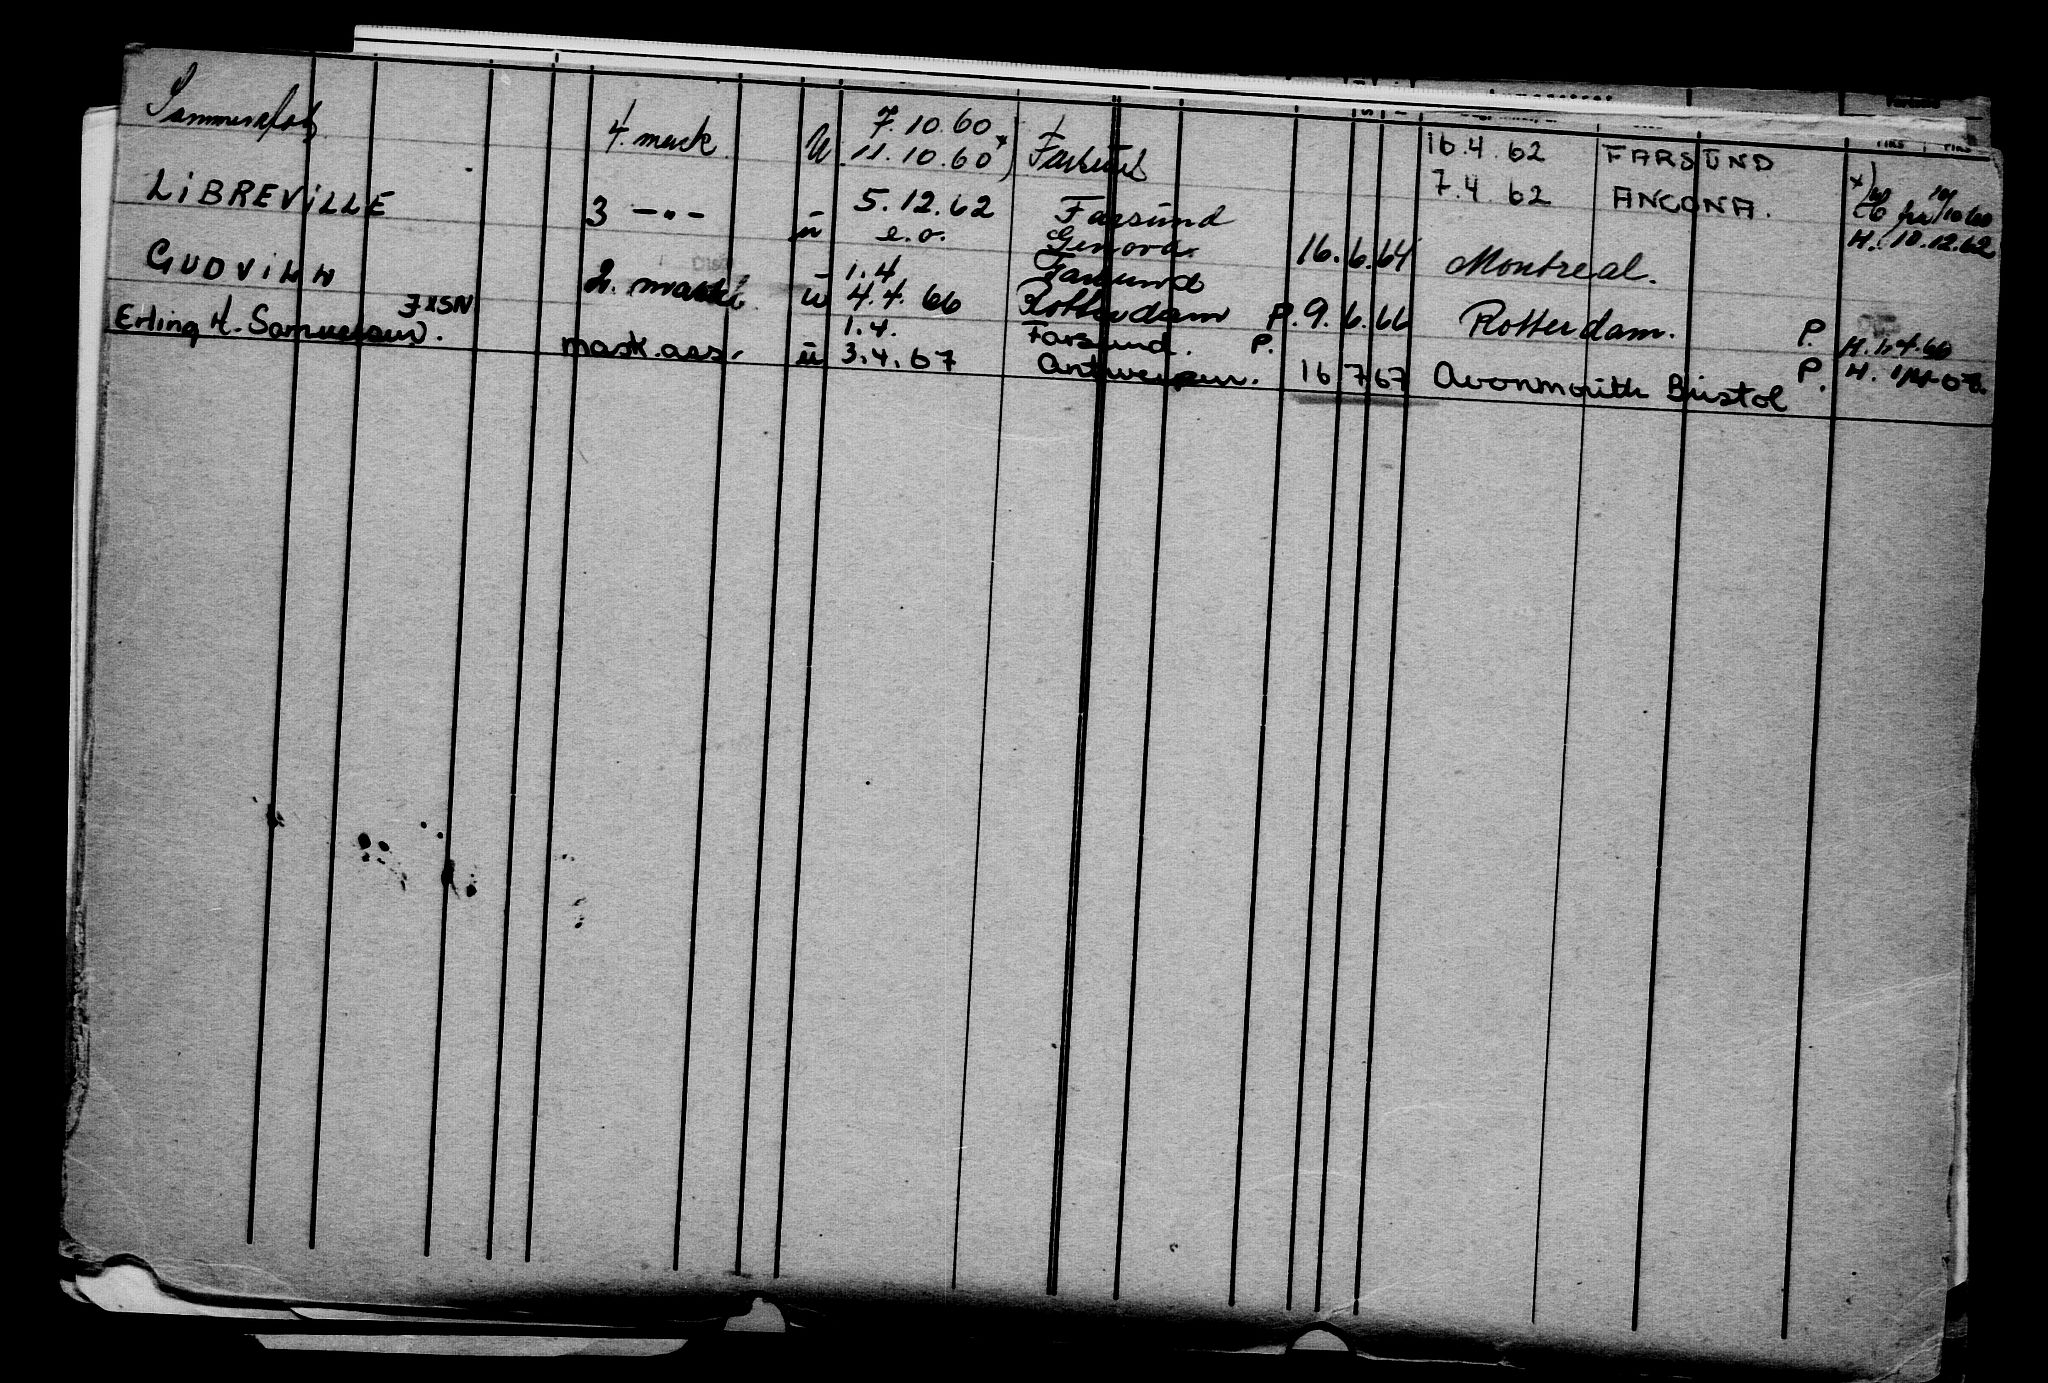 7.10.60 16.4.62 FARSUND
4. mask. U 11.10.60 x) 7.4.62 ANCONA. x)
LIBREVILLE 3 -"- ü 5.12.62 Farsund H. 10.12.62
e.o. Genova 16.6.64 Montreal.
GUDVINN 1.4 Farsund
2. mask ü 4.4.66 Rotterdam P. 9.6.66 Rotterdam. P. H. 1.4.66
JXSN 1.4. Farsund. P.
Erling H. Samuelsen. mask.ass. ü 3.4.67 Antwerpen. 16 7 67 Avonmouth Bristol P. H.